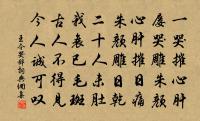 一哭摧心肝
屡哭摧朱颜
心肝摧日痛
朱颜雕日乾
二十人未肚
我衰已毛斑
古人不得见
今人诚可叹
王令哭辞词典网集